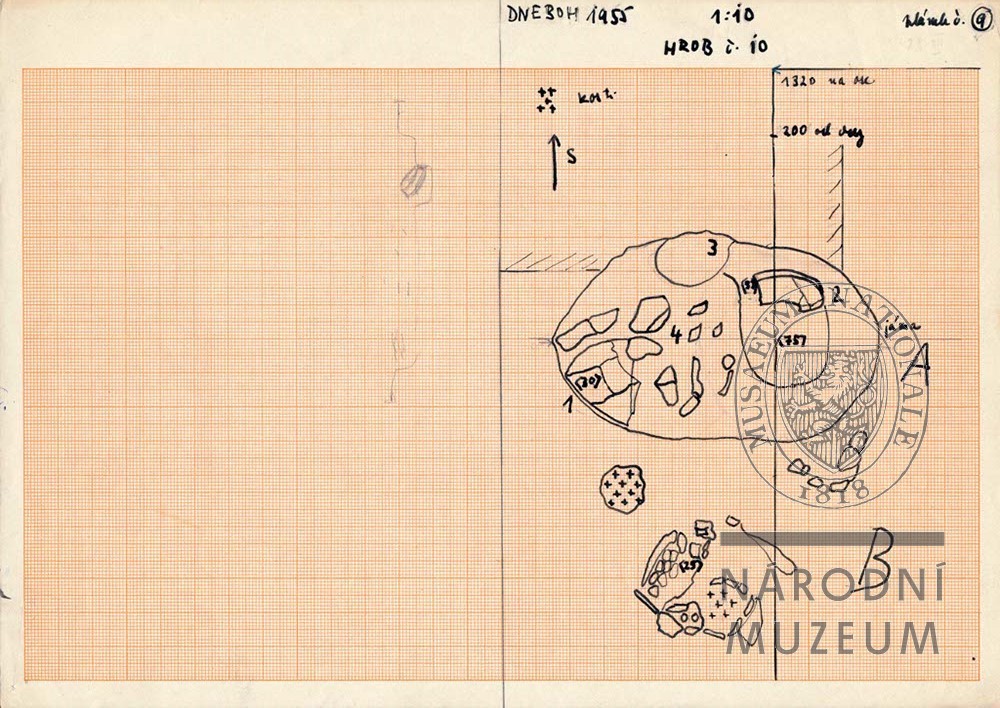 DNEBOH 1955
1:10
HROB č. 10
9
kosti
S
1320 na os
200 od
3
2
(75)
4
jáma
A
1
(25)
B
MUSAEUM NATIONALE
1818
NÁRODNÍ
MUZEUM